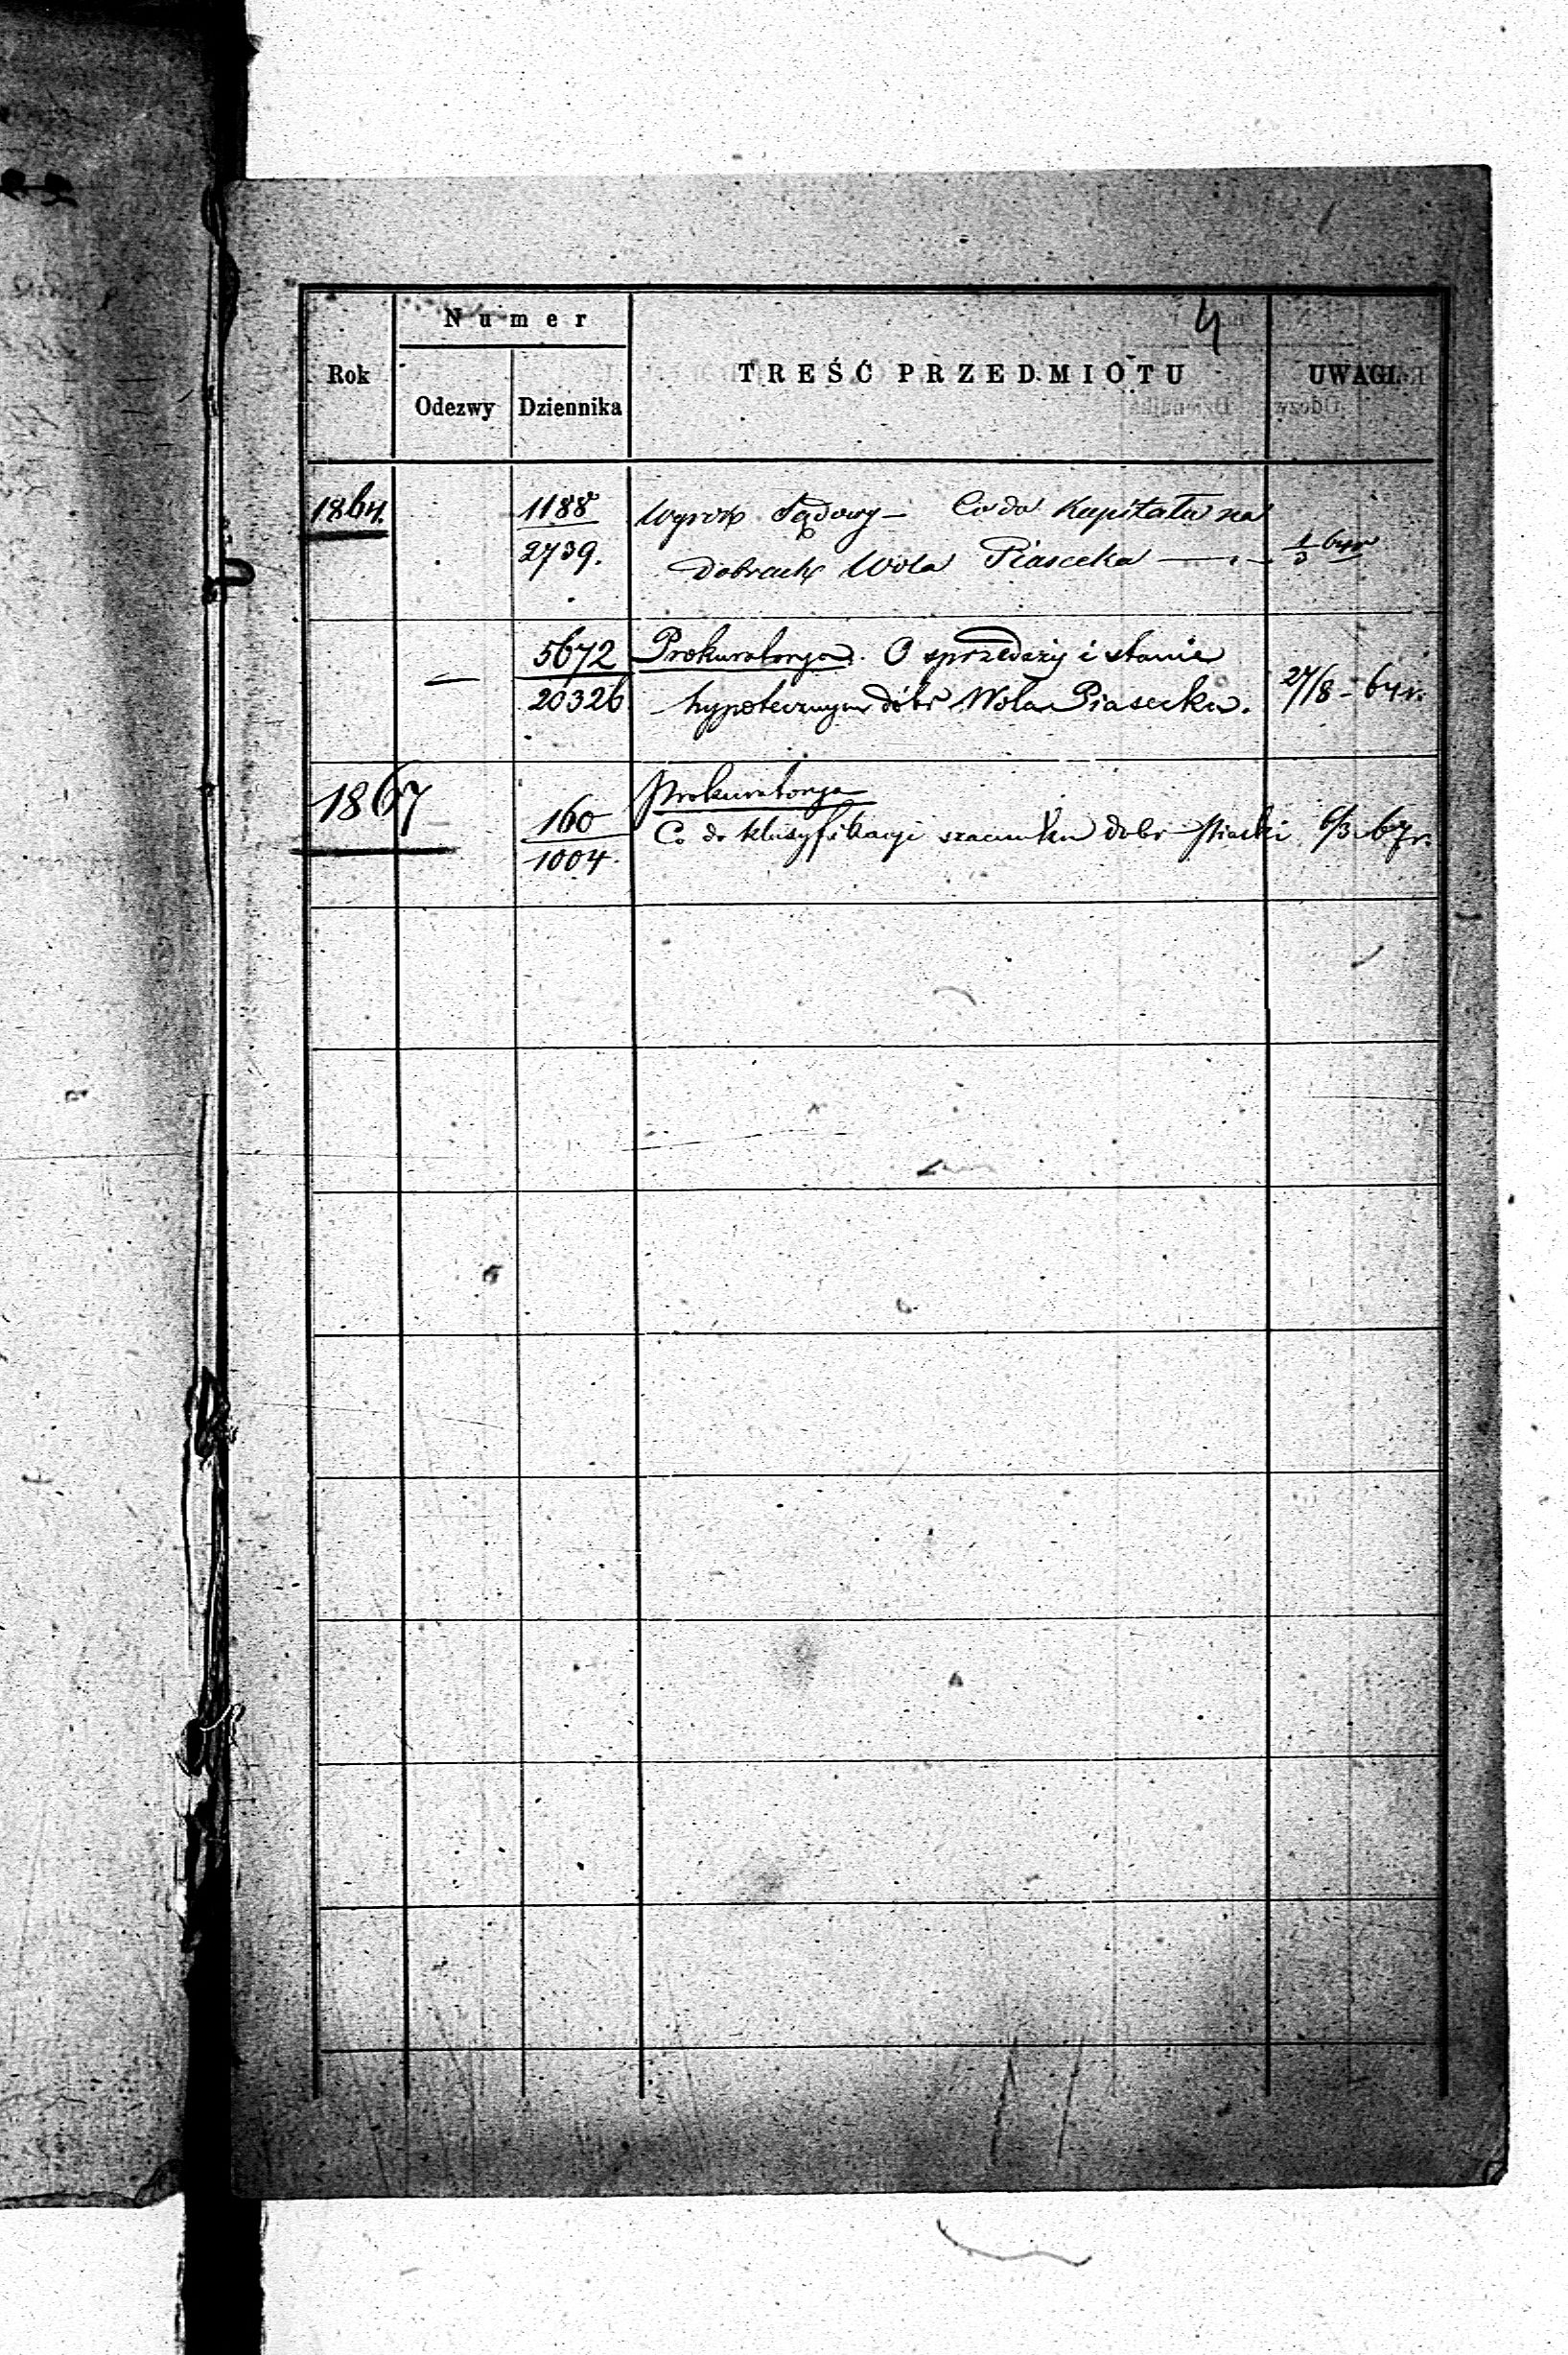 4
Numer
Rok
TREŚĆ PRZEDMIOTU
UWAGI.
Odezwy
Dziennika
1864.
1188
2739.
Wyrok Sądowy – Co do Kapitału na
Dobrach Wola Piasecka
1/3 64r
—
5672
20326
Prokuratorya. O sprzedaży i stanie
hypotecznym dóbr Wola Piasecka.
27/8 – 64 r.
1867
160
1004.
Prokuratorya
Co do klasyfikacyi szacunku dobr Piaski
6/3 67 r.